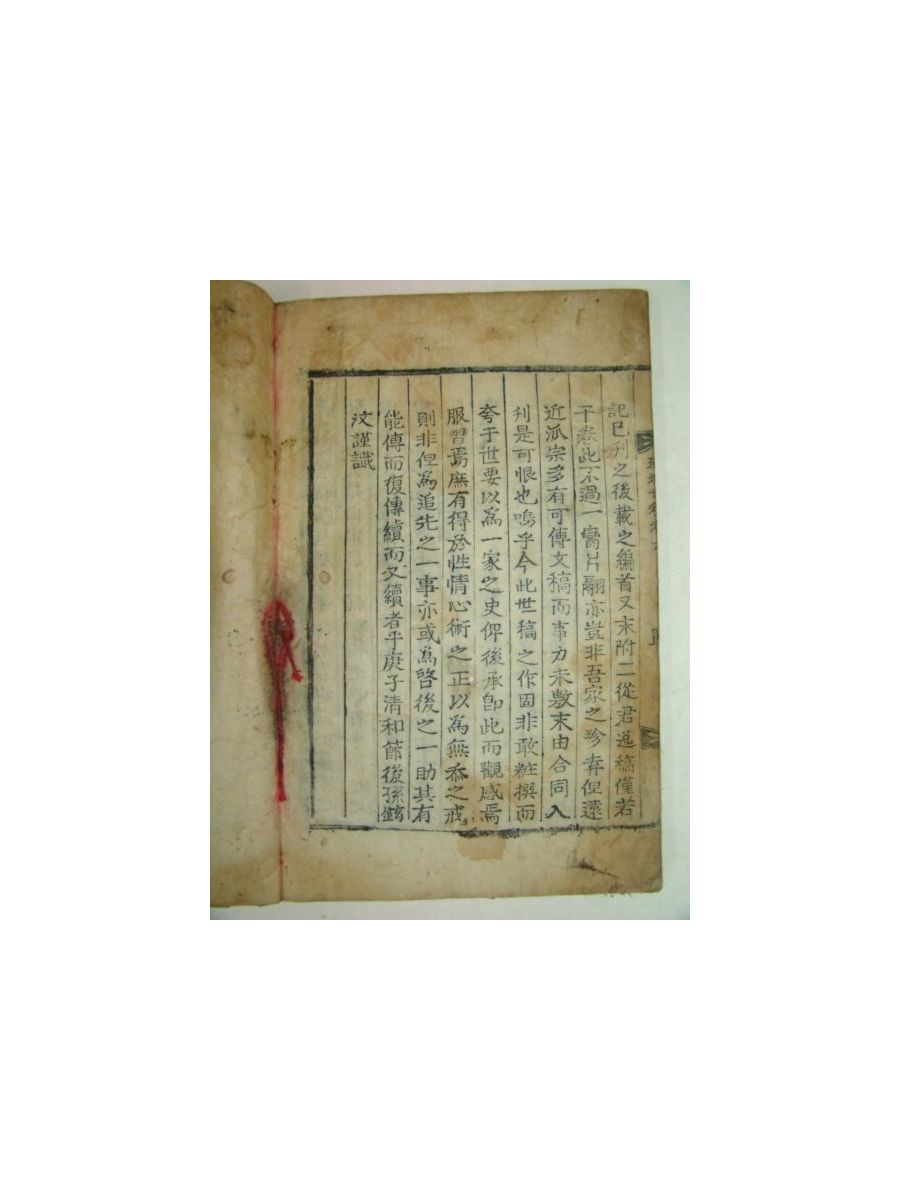 記已刋之後載之編首又末附二從君逸稿僅若
干卷此不過一臠片翮亦豈非吾家之珍弆但遠
近泒宗多有可傳文稿而事力未敷末由合同入
刋是可恨也嗚乎今此世稿之作固非敢粧撰而
夸于世要以為一家之史俾後承卽此而觀感焉
服習焉庶有得於性情心術之正以為無忝之戒
則非但為追先之一事亦或為啓後之一助其有
能傳而復傳續而又續者乎庚子清和節後孫鉉
汶謹識